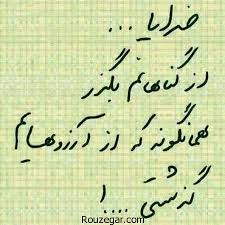 خدایا ...
از گناهانم بگذر
همانگونه که از آرزوهایم
گذشتی .... !
Rouzegar.com